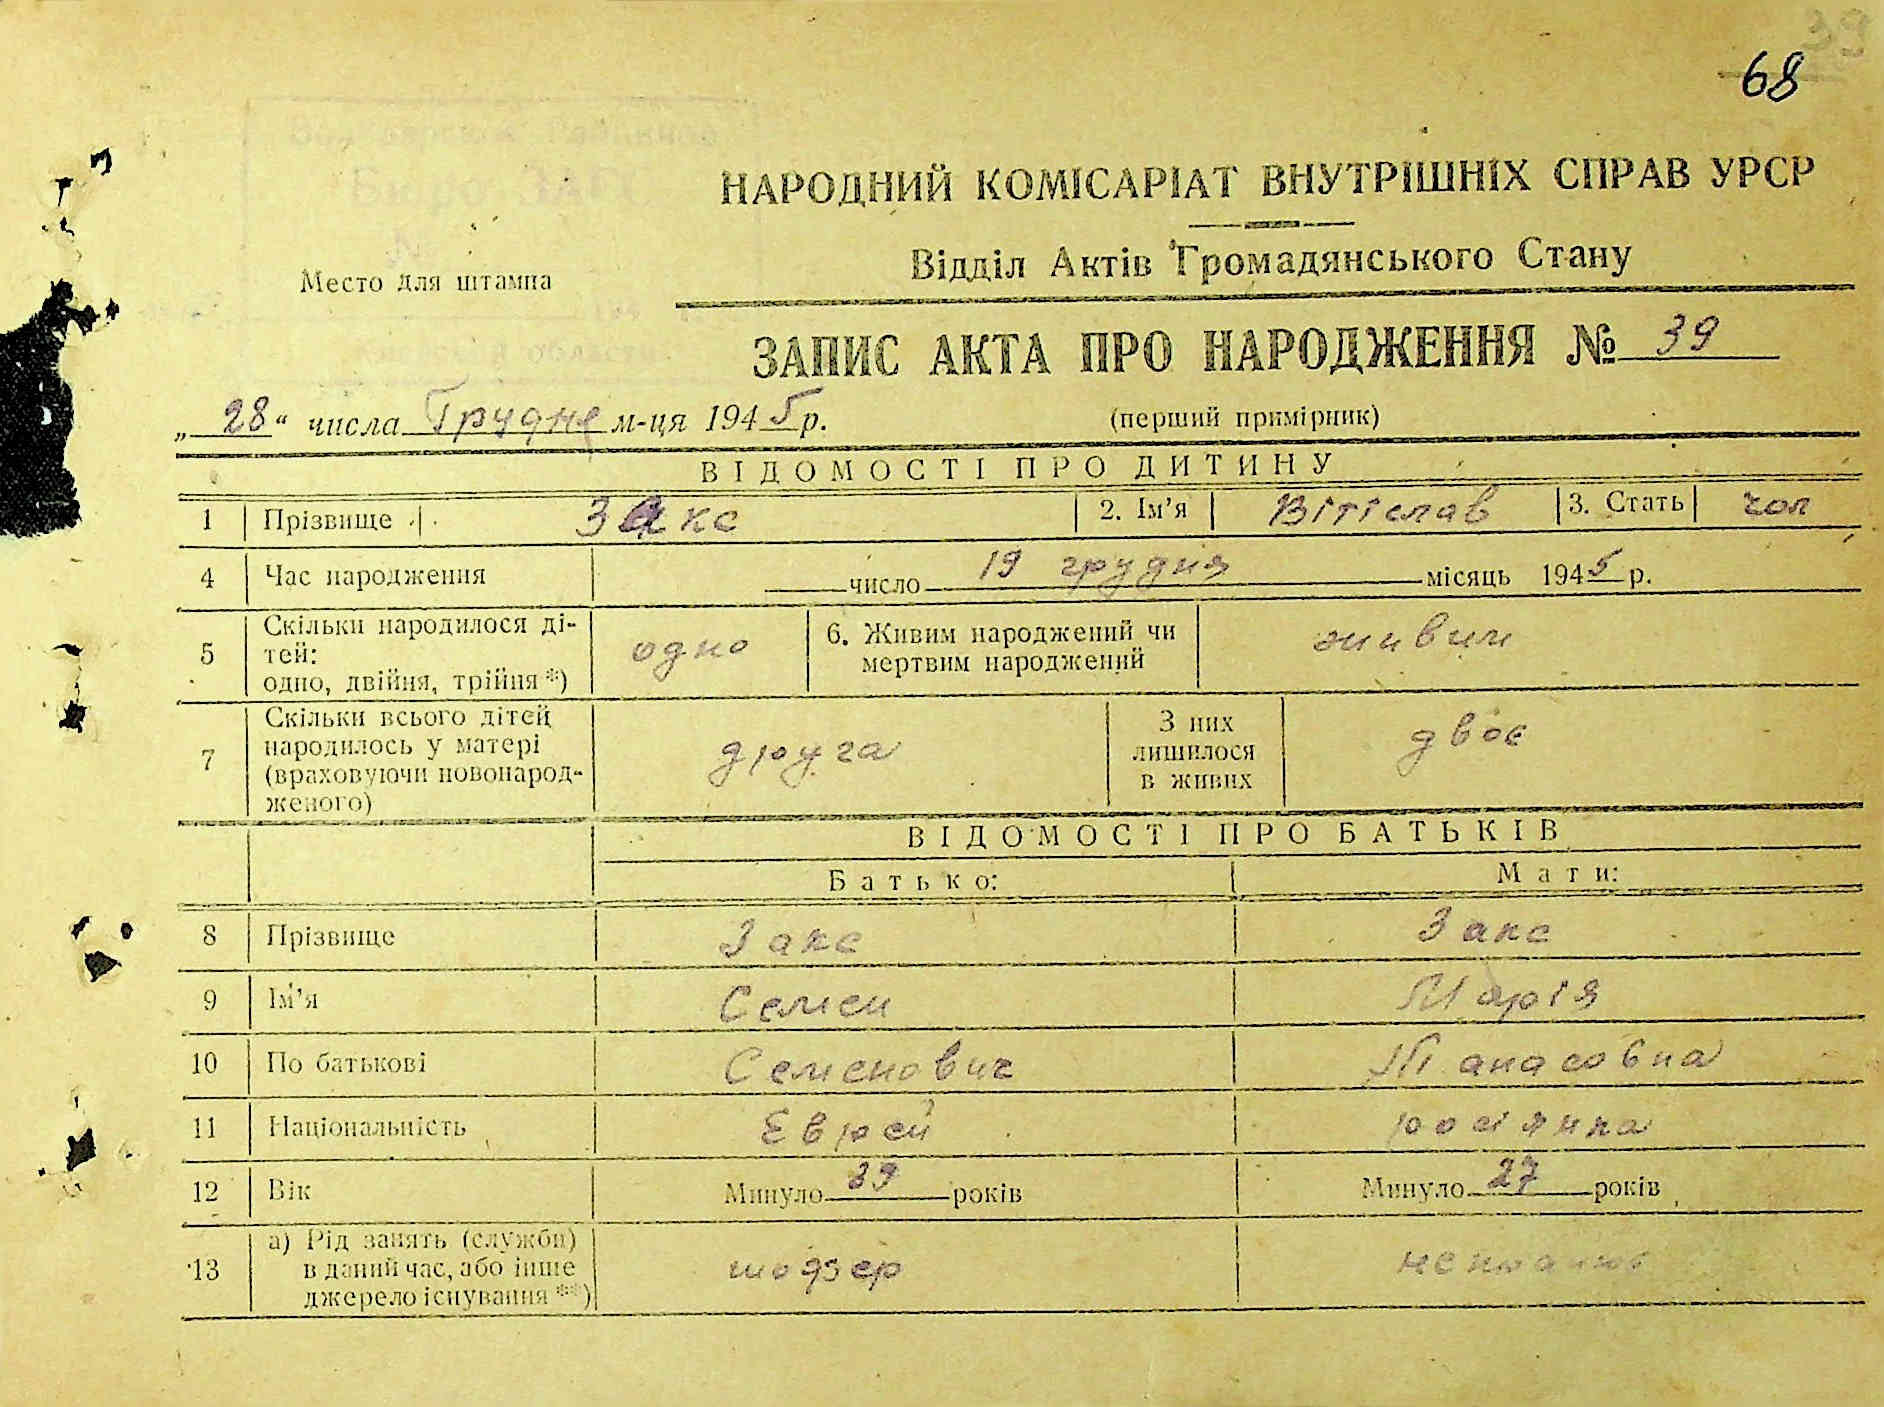 39
68
НАРОДНИЙ КОМІСАРІАТ ВНУТРІШНІХ СПРАВ УРСР
Відділ Актів Громадянського Стану
Бюро ЗАГС
Место для штампа
области
ЗАПИС АКТА ПРО НАРОДЖЕННЯ № 39
„28“ числа Грудня м-ця 1945 р. (перший примірник)
ВІДОМОСТІ ПРО ДИТИНУ
1 Прізвище Закс 2. Ім’я Вітіслав 3. Стать чол
4 Час народження число 19 грудня місяць 1945 р.
5 Скільки народилося ді-
тей:
одно, двійня, трійня *) одно 6. Живим народжений чи
мертвим народжений живим
7 Скільки всього дітей
народилось у матері
(враховуючи новонарод-
женого) друга З них
лишилося
в живих двоє
ВІДОМОСТІ ПРО БАТЬКІВ
Батько: Мати:
8 Прізвище Закс Закс
9 Ім’я Семен Марія
10 По батькові Семенович Панасовна
11 Національність Еврей росіянка
12 Вік Минуло 39 років Минуло 27 років
13 а) Рід занять (служби)
в даний час, або інше
джерело існування **)